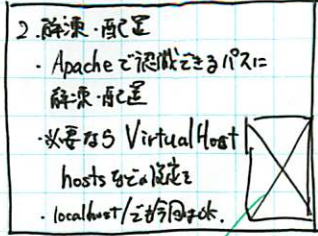 2.解凍・配置
・Apacheで認識できるパスに
解凍・配置
・必要なら VirtualHost
hostsなどの設定を
・localhost/でも今回はok.